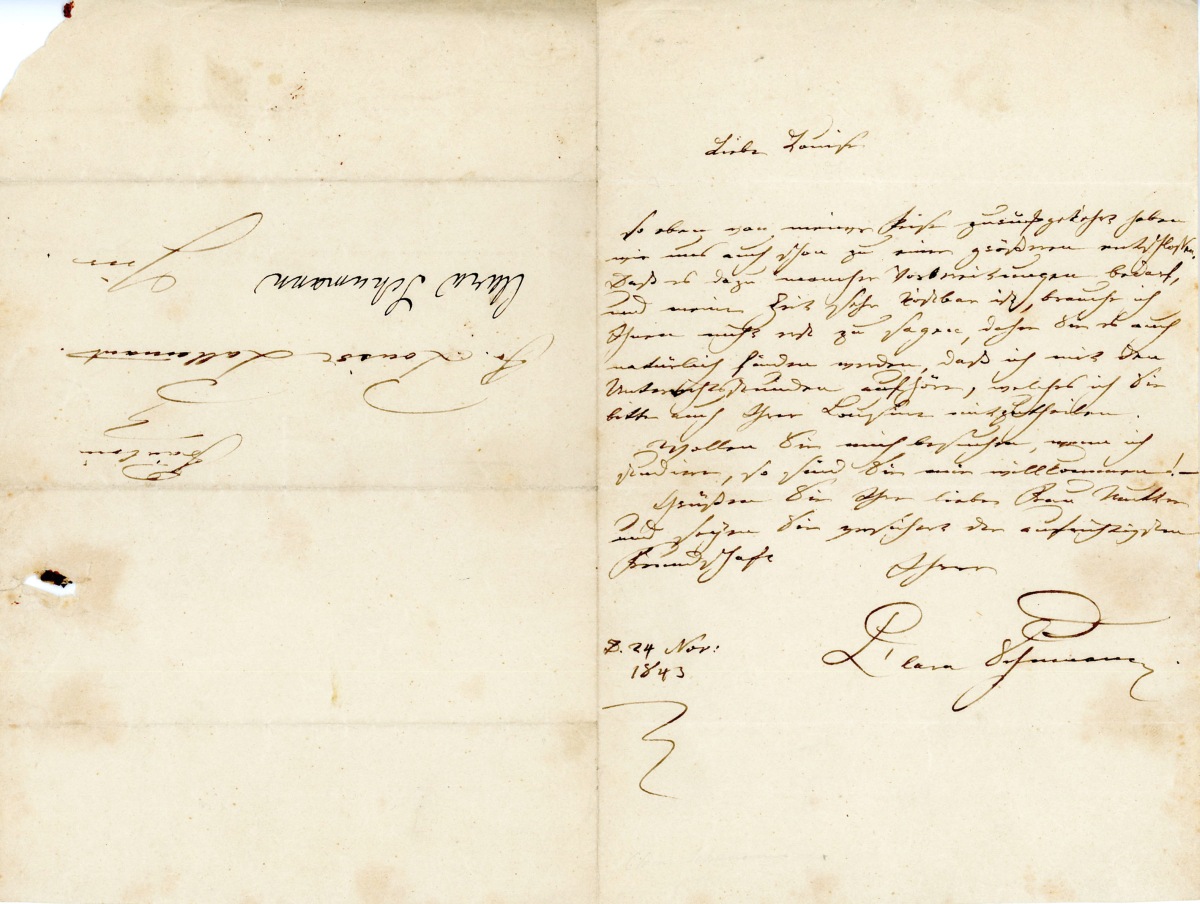 Liebe Louise
so eben von meiner Reise zurückgekehrt haben
wir uns auch schon zu einer größeren entschlossen.
Daß es dazu mancher Vorbereitungen bedarf,
und meine Zeit sehr kostbar ist, brauche ich
Ihnen nicht erst zu sagen, daher Sie es auch
natürlich finden werden, daß ich mit den
Unterrichtsstunden aufhöre, welches ich Sie
bitte auch Ihrer Cousine mitzutheilen.
Wollen Sie mich besuchen, wenn ich
studiere, so sind Sie mir willkommen! –
Grüßen Sie Ihre liebe Frau Mutter
und seyen Sie versichert der aufrichtigsten
Freundschaft
Ihrer
Clara Schumann.
D. 24 Nov:
1843
Fräulein
Louise Lallemant.
Clara Schumann